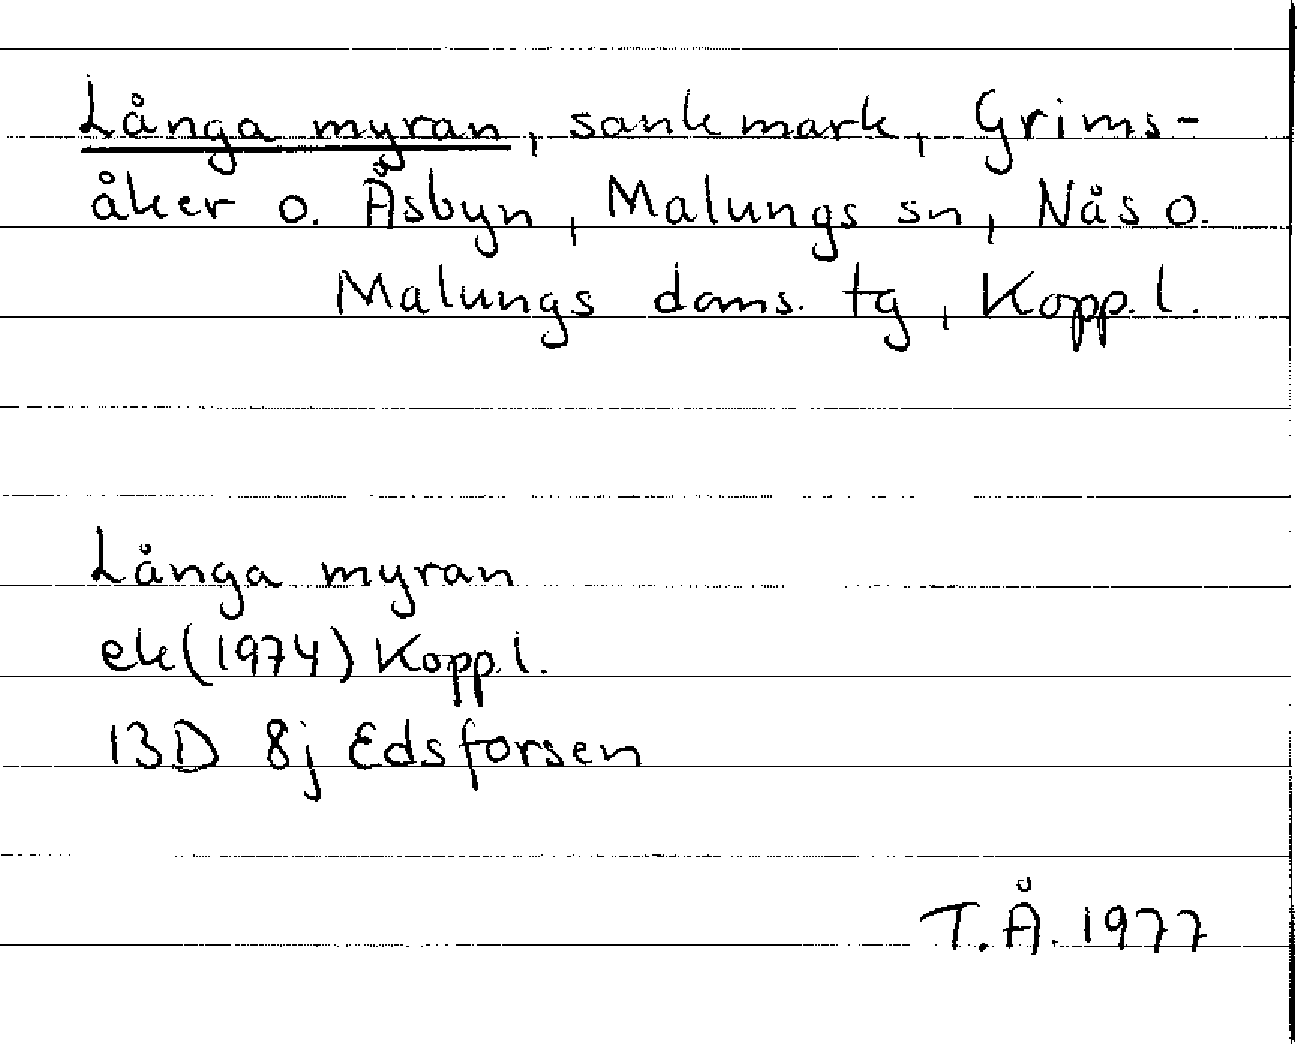 Långa myran, sankmark, Grims-
åker o. Åsbyn, Malungs sn, Nås o.
Malungs doms. tg, Kopp. l.
Långa myran
ek (1974) Kopp. l.
13D 8j Edsforsen
T.Å. 1977